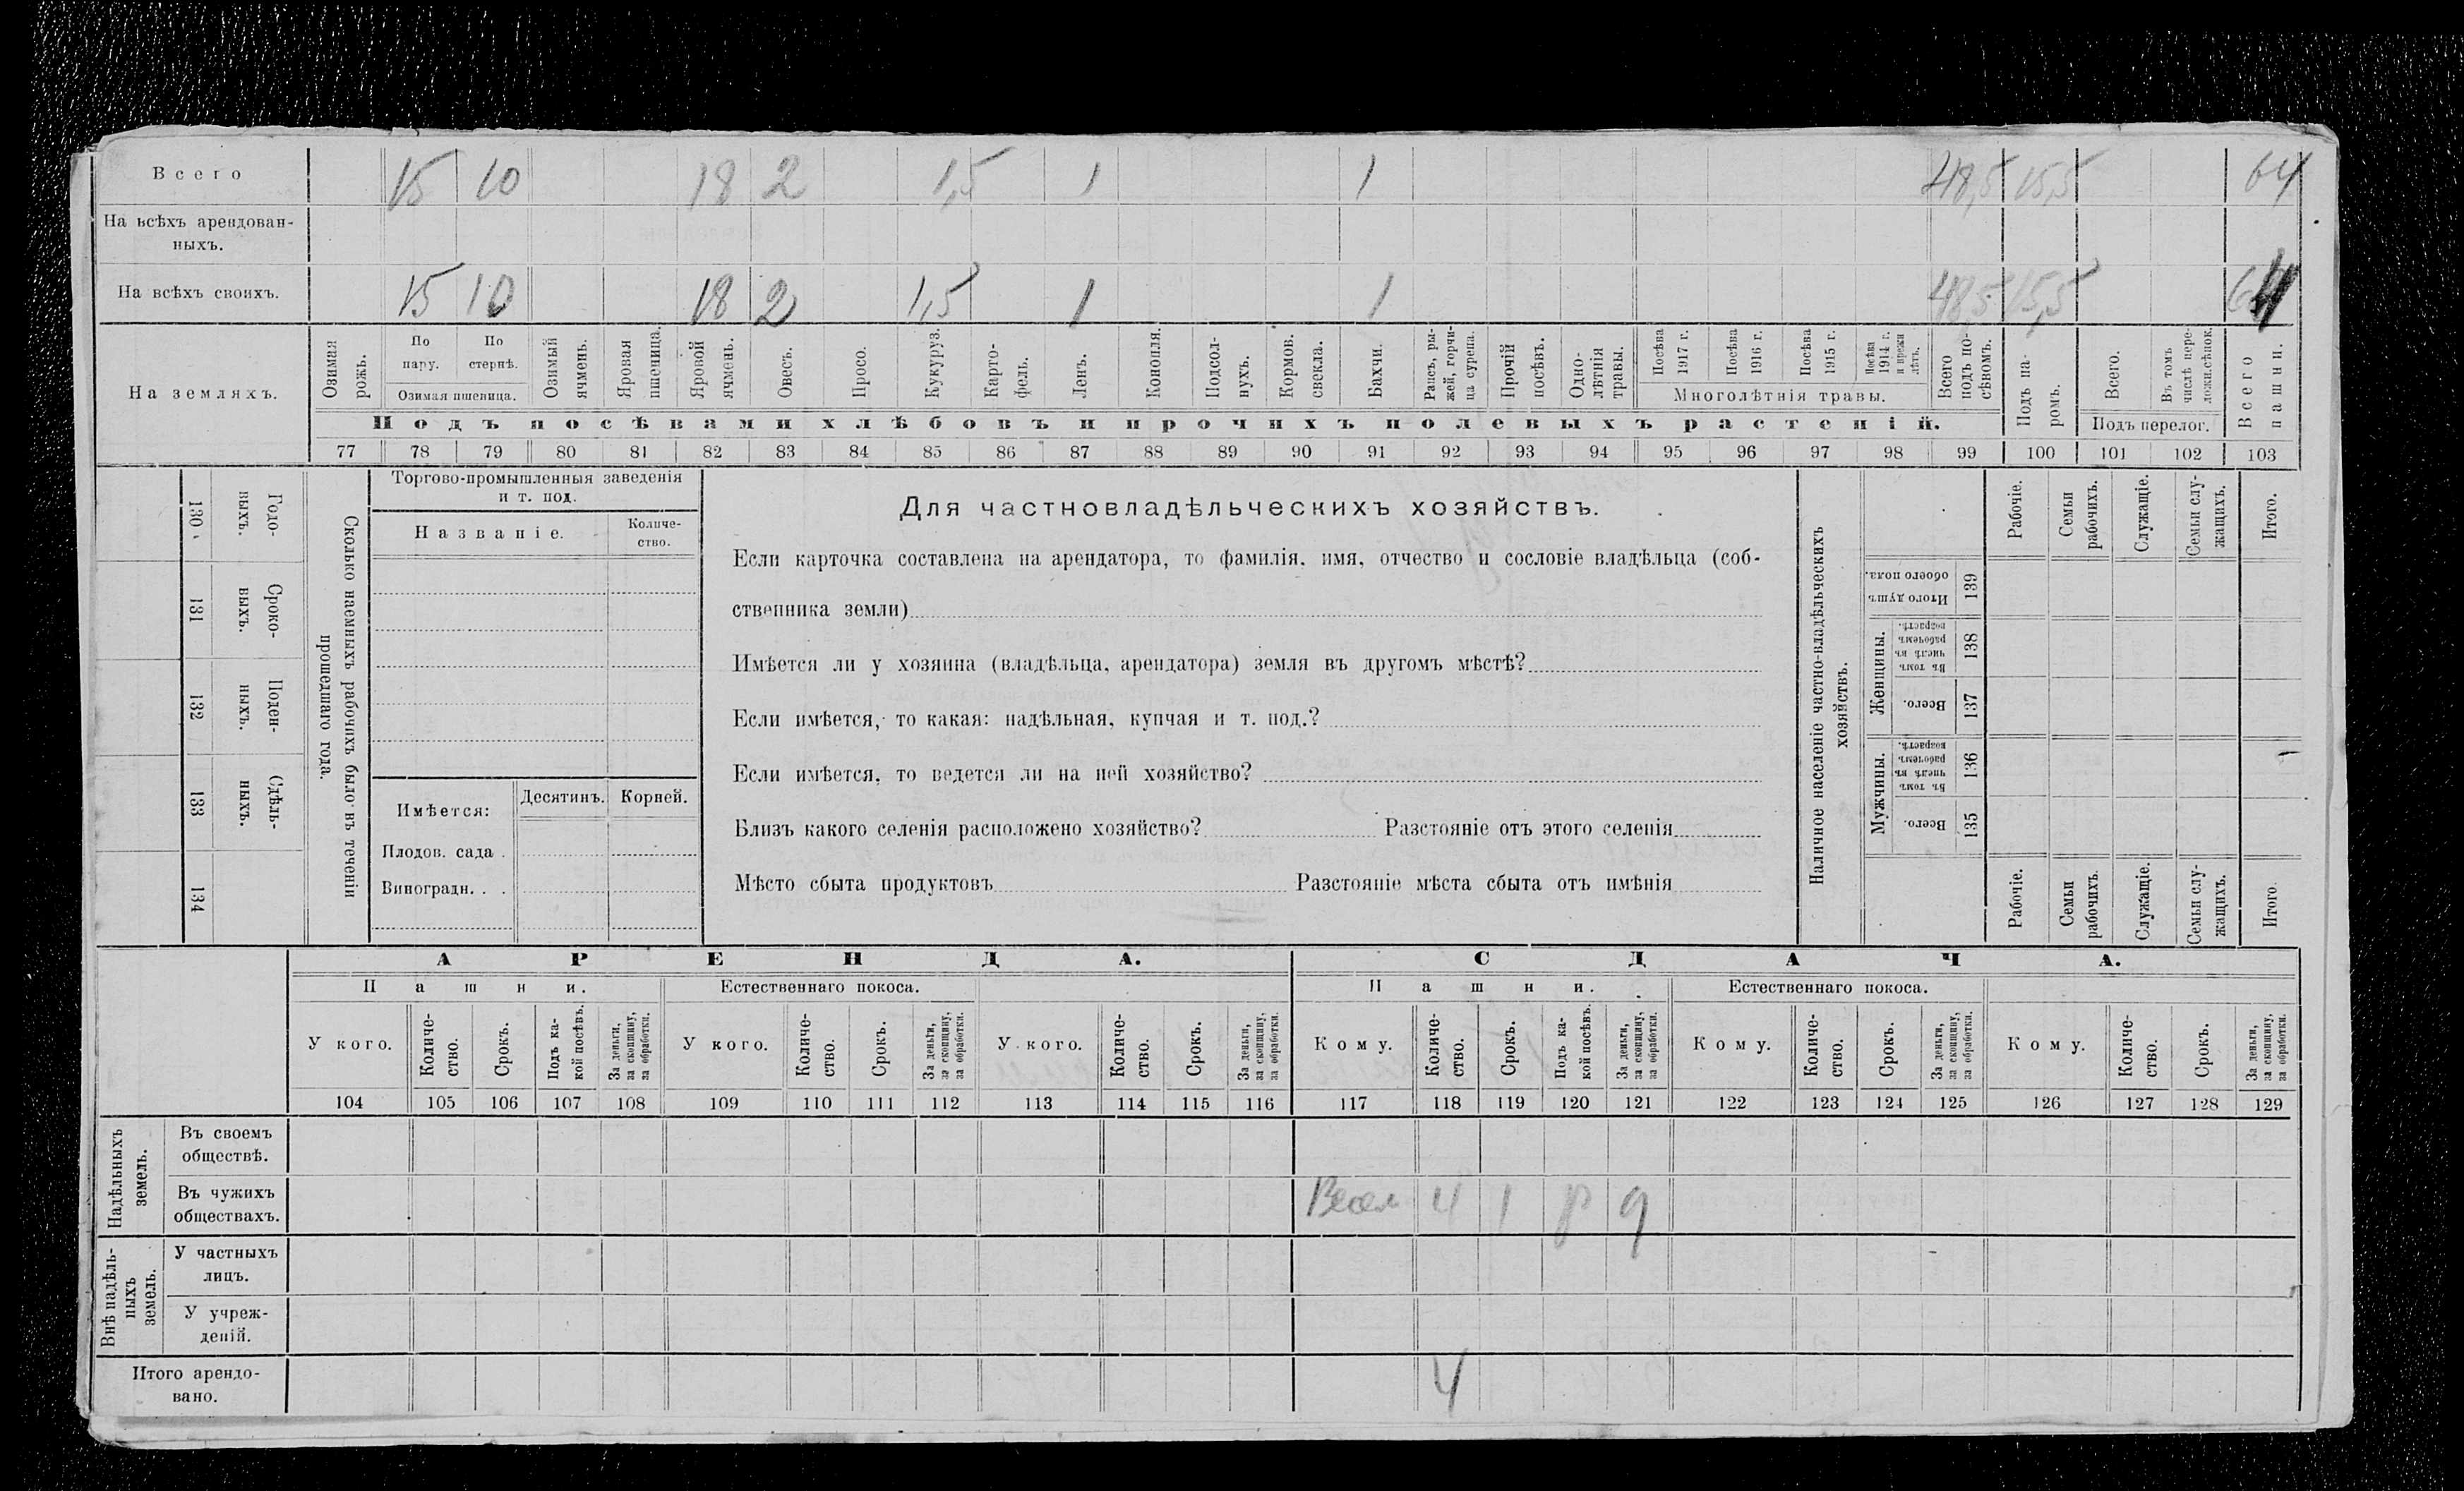 Всего 15 10 18 2 1,5 1 1 48,5 15,5 64
На всѣхъ арендован-
ныхъ.
На всѣхъ своихъ. 15 10 18 2 1,5 1 1 48,5 15,5 64
На земляхъ.
Озимая рожь.
По пару.
По стернѣ.
Озимая пшеница.
Озимый ячмень.
Яровая пшеница.
Яровой ячмень.
Овесъ.
Просо.
Кукуруз.
Карто-
фель.
Ленъ.
Конопля.
Подсол-
нухъ.
Кормов.
свекла.
Бахчи.
Рапсъ, ры-
жей, горчи-
ца сурепа.
Прочій
посѣвъ.
Одно-
лѣтнія
травы.
Посѣва
1917 г.
Посѣва
1916 г.
Посѣва
1915 г.
Посѣва
1914 г.
Многолѣтнія травы.
Всего
подъ по-
сѣвомъ.
Подъ па-
ромъ.
Всего.
Въ томъ
числѣ пере-
Подъ перелог.
Всего
пашни.
Подъ посѣвами хлѣбовъ и прочихъ полевыхъ растеній.
77 78 79 80 81 82 83 84 85 86 87 88 89 90 91 92 93 94 95 96 97 98 99 100 101 102 103
Годо-
выхъ.
130
Сроко-
выхъ.
131
Поден-
ныхъ.
132
Сдѣль-
ныхъ.
133
134
Сколько наемныхъ рабочихъ было въ теченіи
прошедшаго года.
Торгово-промышленныя заведенія
и т. под.
Названіе.
Количе-
ство.
Имѣется:
Десятинъ.
Корней.
Плодов. сада .
Виноградн. . .
Для частновладѣльческихъ хозяйствъ.
Если карточка составлена на арендатора, то фамилія, имя, отчество и сословіе владѣльца (соб-
ственника земли)
Имѣется ли у хозяина (владѣльца, арендатора) земля въ другомъ мѣстѣ?
Если имѣется, то какая: надѣльная, купчая и т. под.?
Если имѣется, то ведется ли на ней хозяйство?
Близъ какого селенія расположено хозяйство? Разстояніе отъ этого селенія
Мѣсто сбыта продуктовъ Разстояніе мѣста сбыта отъ имѣнія
Наличное населеніе частно-владѣльческихъ
хозяйствъ.
Рабочіе.
Семьи
рабочихъ.
Служащіе.
Семьи слу-
жащихъ.
Итого.
Итого душъ
обоего пола.
139
Женщины.
Въ томъ
числѣ въ
рабочемъ
возрастѣ.
138
Всего.
137
Мужчины.
Въ томъ
числѣ въ
рабочемъ
возрастѣ.
136
Всего.
135
Рабочіе.
Семьи
рабочихъ.
Служащіе.
Семьи слу-
жащихъ.
Итого.
АРЕНДА. СДАЧА.
Пашни. Естественнаго покоса. Пашни. Естественнаго покоса.
У кого.
Количе-
ство.
Срокъ.
Подъ ка-
кой посѣвъ.
За деньги,
за скопщину,
за обработки.
У кого.
Количе-
ство.
Срокъ.
За деньги,
за скопщину,
за обработки.
У кого.
Количе-
ство.
Срокъ.
За деньги,
за скопщину,
за обработки.
Кому.
Количе-
ство.
Срокъ.
Подъ ка-
кой посѣвъ.
За деньги,
за скопщину,
за обработки.
Кому.
Количе-
ство.
Срокъ.
За деньги,
за скопщину,
за обработки.
Кому.
Количе-
ство.
Срокъ.
За деньги,
за скопщину,
за обработки.
104 105 106 107 108 109 110 111 112 113 114 115 116 117 118 119 120 121 122 123 124 125 126 127 128 129
Надѣльныхъ
земель.
Въ своемъ
обществѣ.
Въ чужихъ
обществахъ.
4 1 р д
Внѣ надѣль-
ныхъ
земель.
У частныхъ
лицъ.
У учреж-
деній.
Итого арендо-
вано.
4